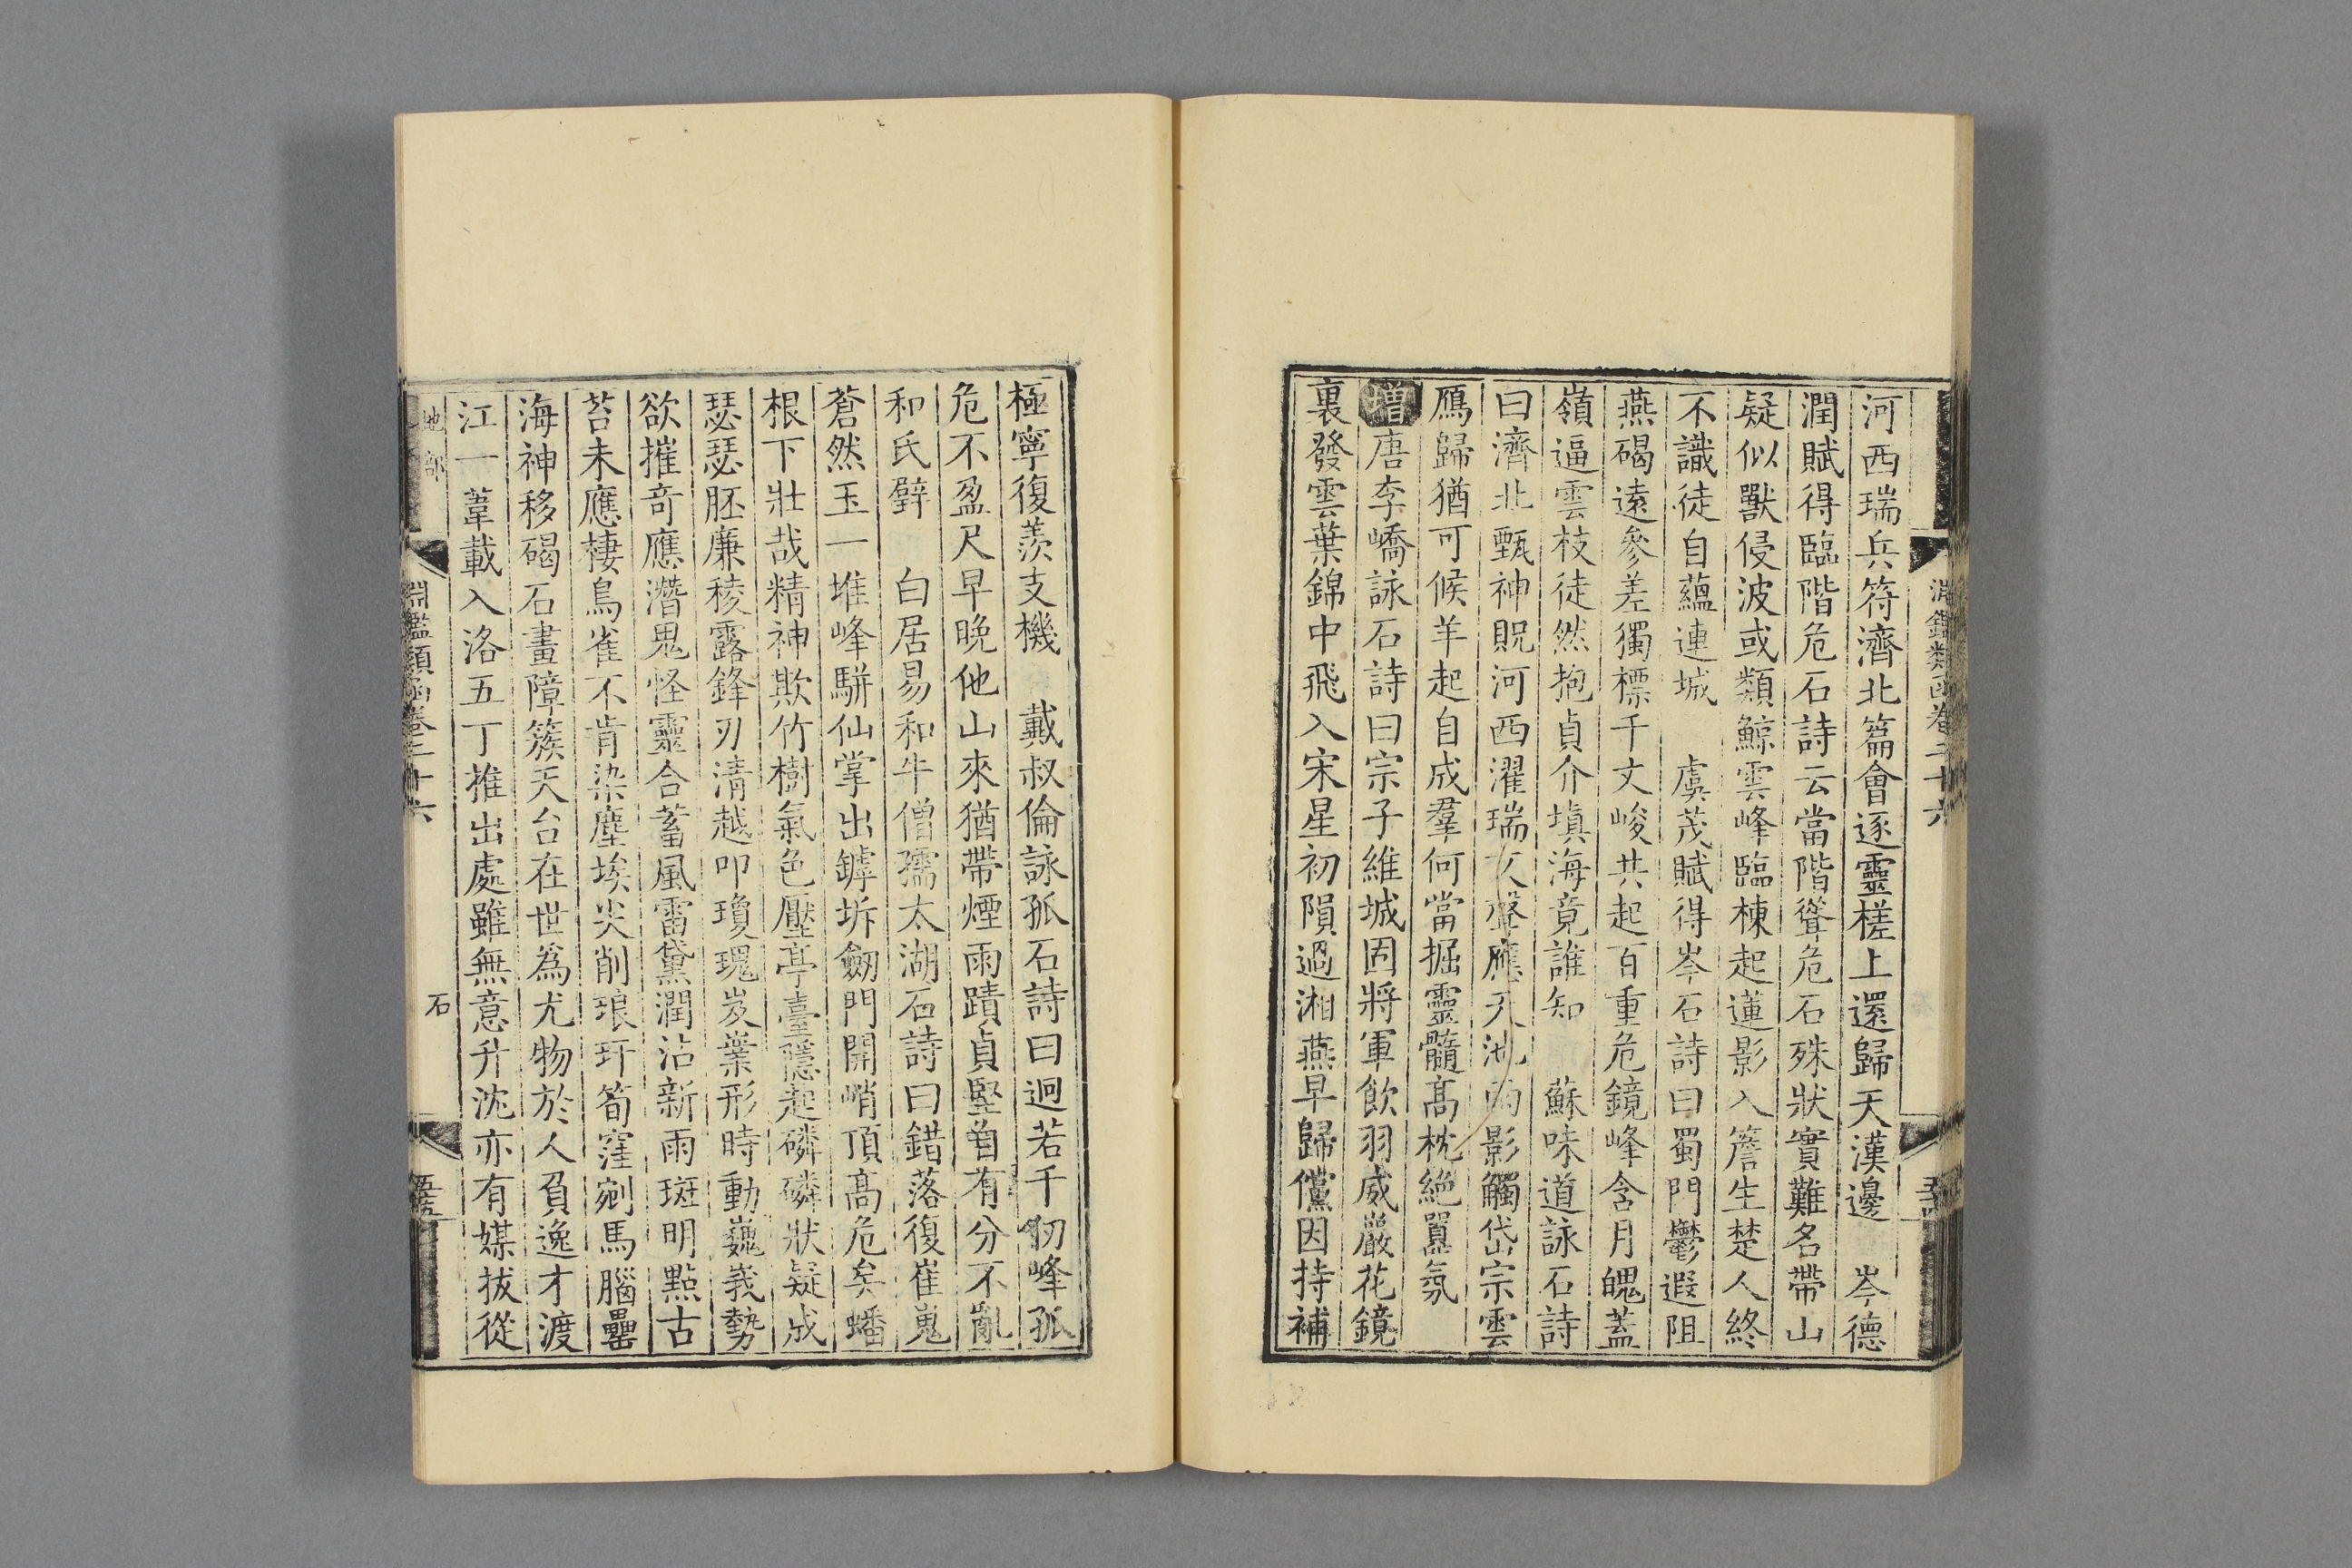 淵鑑類函卷二十六
河西瑞兵符濟北篇會逐靈槎上還歸天漢邊　岑德
潤賦得臨階危石詩云當階聳危石殊狀實難名帶山
疑似獸侵波或類鯨雲峰臨棟起蓮影入簷生楚人終
不識徒自蘊連城　虞茂賦得岑石詩曰蜀門鬱遐阻
燕碣遠參差獨標千丈峻共起百重危鏡峰含月魄蓋
嶺逼雲枝徒然抱貞介填海竟誰知　蘇味道詠石詩
曰濟北甄神貺河西濯瑞文聲應天池雨影觸岱宗雲
鴈歸猶可候羊起自成羣何當掘靈髓高枕絶囂氛
增唐李嶠詠石詩曰宗子維城固將軍飲羽威巖花鏡
裏發雲葉錦中飛入宋星初隕過湘燕早歸儻因持補
極寧復羨支機　戴叔倫詠孤石詩曰迥若千仞峰孤
危不盈尺早晚他山來猶帶煙雨蹟貞堅自有分不亂
和氏璧　白居易和牛僧孺太湖石詩曰錯落復崔嵬
蒼然玉一堆峰駢仙掌出罅坼劒門開峭頂高危矣蟠
根下壯哉精神欺竹樹氣色壓亭臺隱起磷磷狀疑成
瑟瑟胚廉稜露鋒刃清越叩瓊瑰岌嶪形時動巍峩勢
欲摧奇應潛鬼怪靈合蓄風雷黛潤沾新雨斑明點古
苔未應棲鳥雀不肯染塵埃尖削琅玕筍窪剜馬腦罍
海神移碣石畫障簇天台在世爲尤物於人負逸才渡
江一葦載入洛五丁推出處雖無意升沈亦有媒拔從
地部　淵鑑類函卷二十六　石